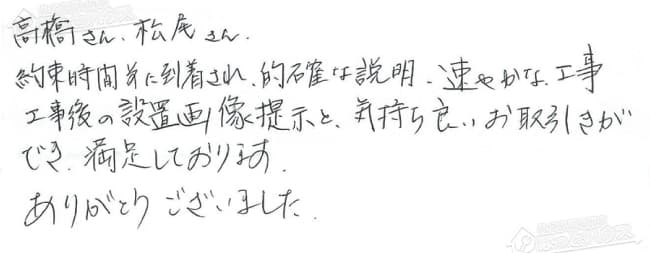 高橋さん、松尾さん.
約束時間前に到着され、的確な説明、速やかな工事
工事後の設置画像提示と、気持ち良いお取引きが
でき、満足しております.
ありがとうございました.